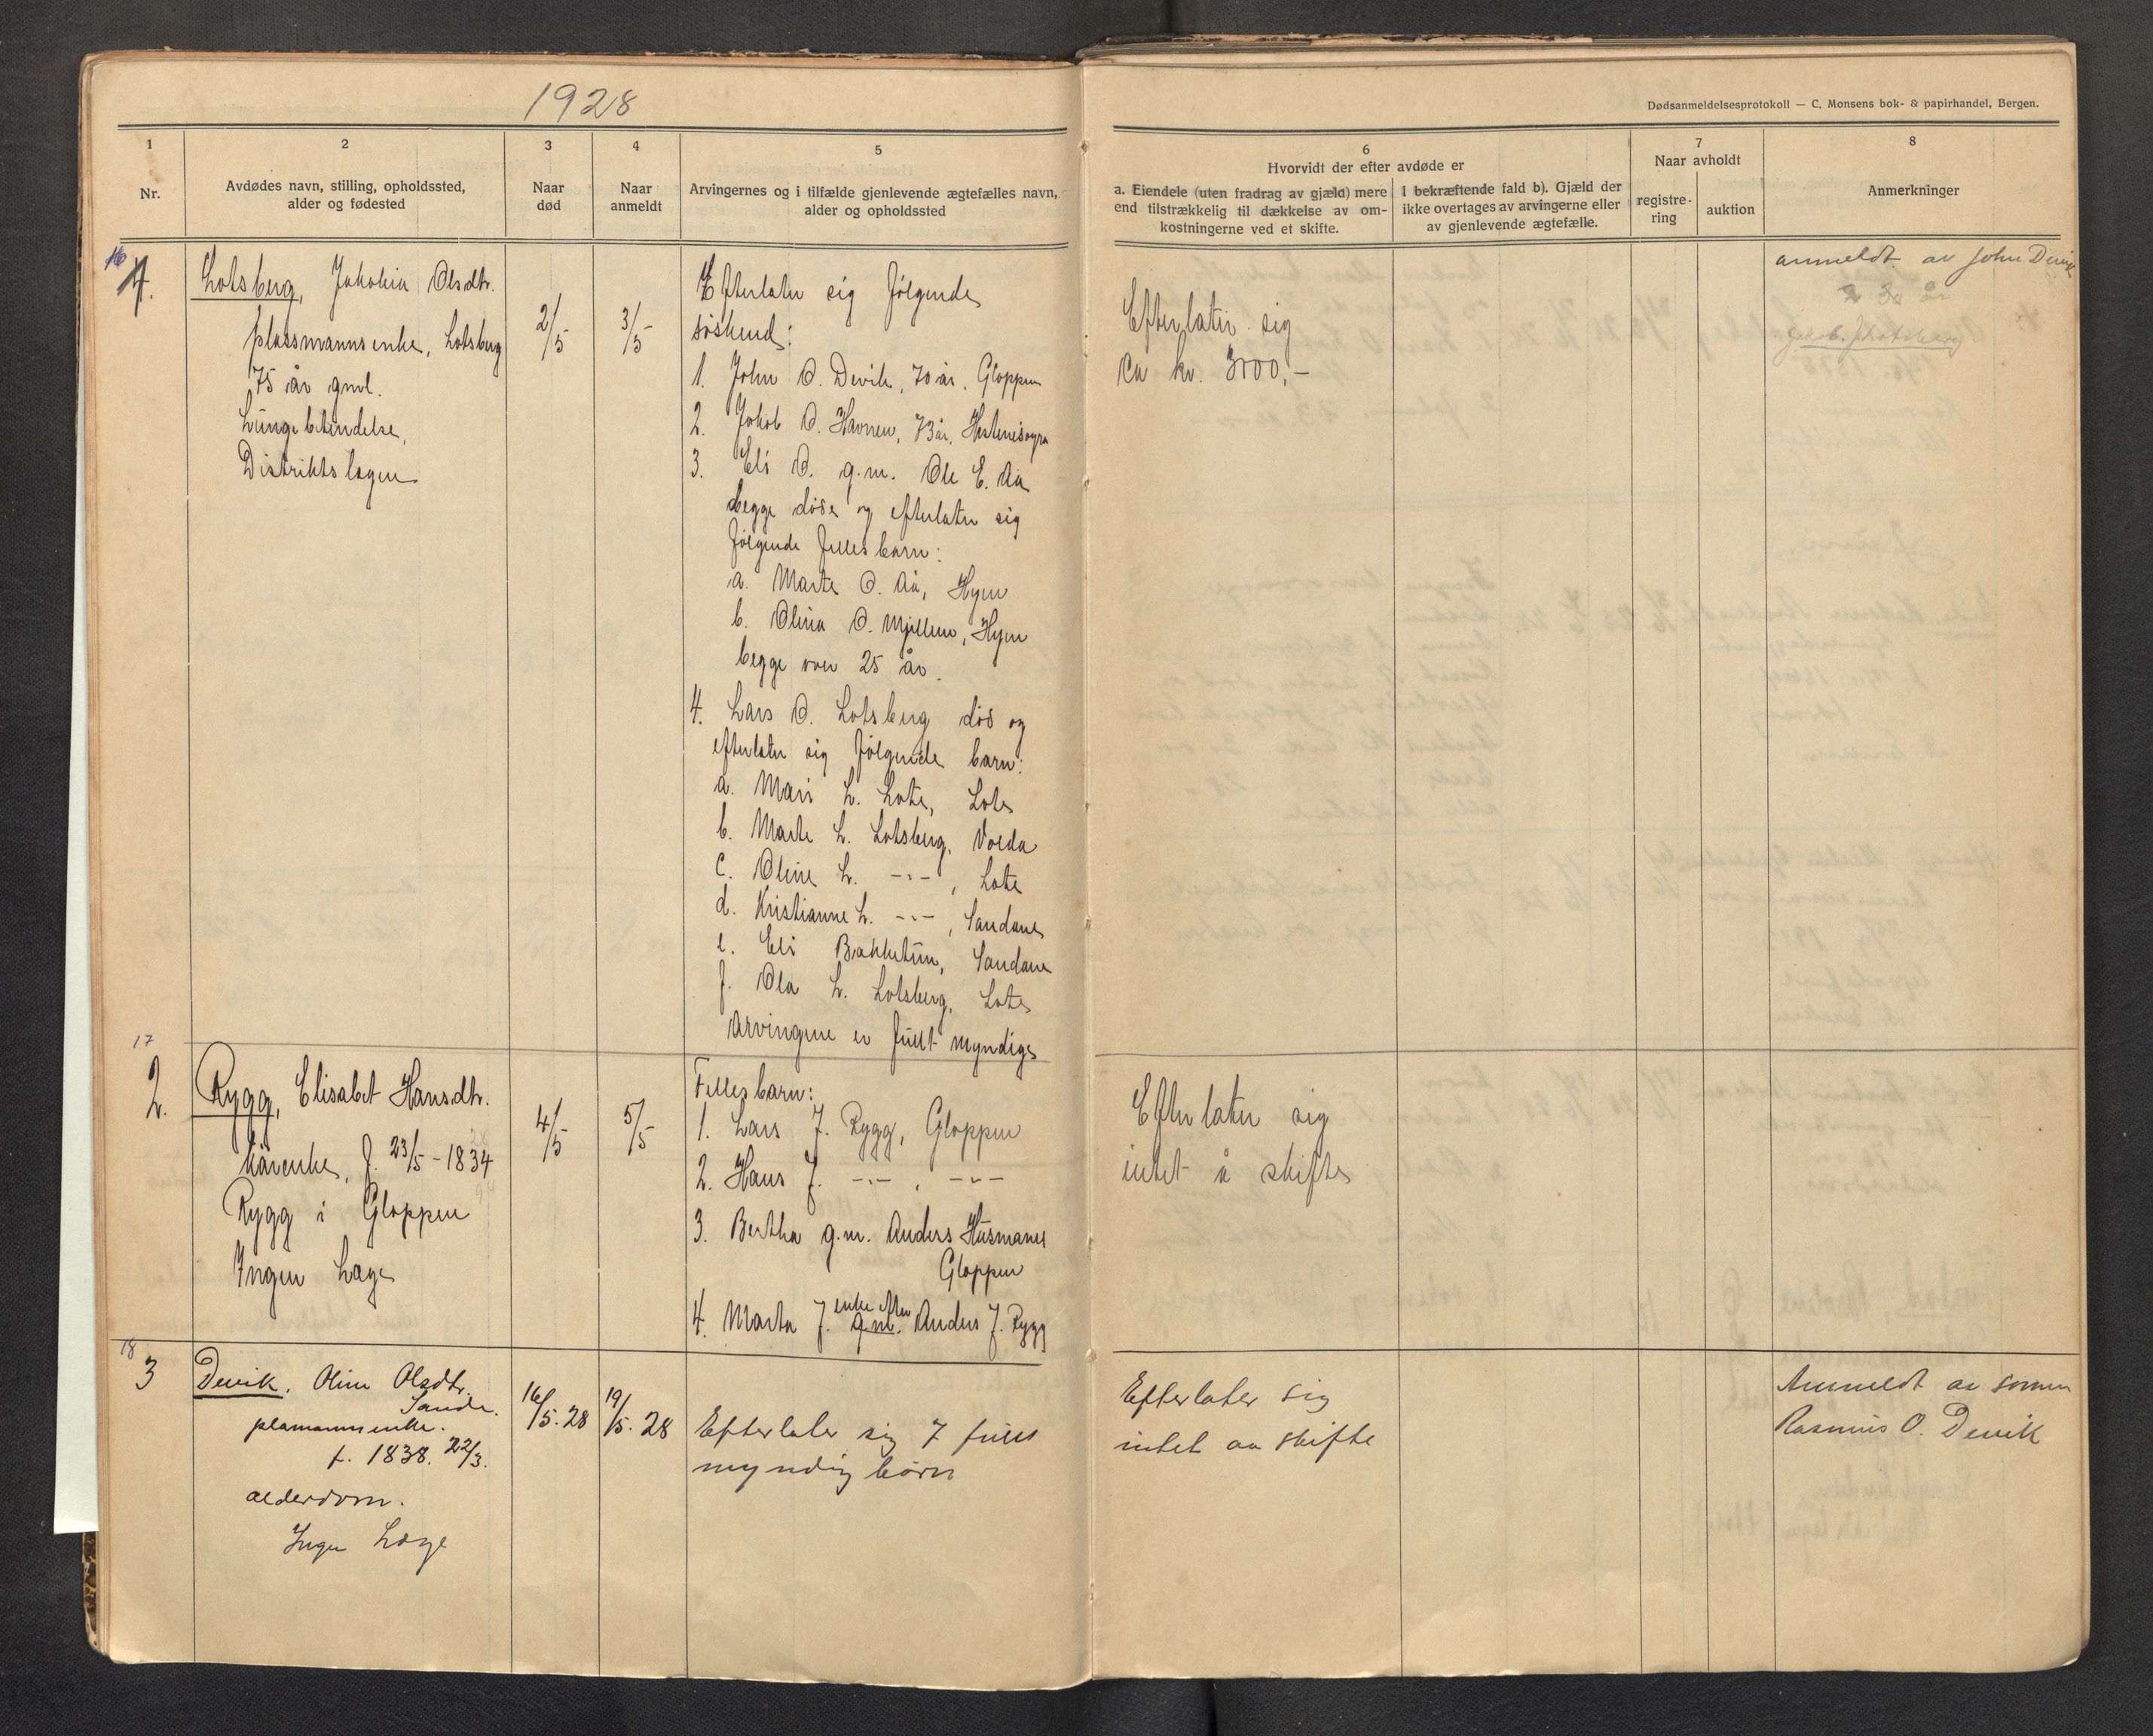 1928
Dødsanmeldelsesprotokoll — C. Monsens bok- & papirhandel, Bergen.
1
Nr.
2
Avdødes navn, stilling, opholdssted,
alder og fødested
3
Naar
død
4
Naar
anmeldt
5
Arvingernes og i tilfælde gjenlevende ægtefælles navn,
alder og opholdssted
6
Hvorvidt der efter avdøde er
a. Eiendele (uten fradrag av gjæld) mere
end tilstrækkelig til dækkelse av om-
kostningerne ved et skifte.
I bekræftende fald b). Gjæld der
ikke overtages av arvingerne eller
av gjenlevende ægtefælle.
7
Naar avholdt
registre-
ring
auktion
8
Anmerkninger
16
1.
Lotsberg, Jakobia Olsdtr.
plassmannsenke, Lotsberg
75 år gml.
Lungebetendelse,
Distriktslægen
2/5
3/5
Efterlater sig følgende
søskend:
1. John O. Devik, 70 år, Gloppen
2. Jakob O. Havnen, 73 år,
3. Eli O. g.m. Ole E. Aa
begge døde og efterlater sig
følgende fellesbarn:
a. Marte O. Aa, Hyen
b. Olina O. Mjellem, Hyen
begge over 25 år.
4. Lars O. Lotsberg død og
efterlater sig følgende barn:
a. Mari L. Lote, Lote
b. Marte L. Lotsberg, Volda
c. Oline L. -"-, Lote
d. Kristianne L. -"-, Sandane
e. Eli Bakketun, Sandane
f. Ola L. Lotsberg, Lote
Arvingene er fullt myndige
Efterlater sig
ca kr. 3000,-
anmeldt av John Devik
17
2.
Rygg, Elisabet Hansdtr.
kårenke, f. 23/5 - 1834
Rygg i Gloppen
Ingen Læge
4/5
5/5
Fellesbarn:
1. Lars J. Rygg, Gloppen
2. Hans J. -"-, -"-
3. Bertha g.m. Anders Husmanes
Gloppen
4. Marta J. g.m. enke efter Anders J. Rygg
Efterlater sig
intet å skifte
18
3
Devik, Oline Olsdtr.
Sande.
plamannsenke.
f. 1838. 22/3.
alderdom.
Ingen Læge
16/5. 28
19/5. 28
Efterlater sig 7 fullt
myndig børn
Efterlater sig
intet aa skifte
Anmeldt av sønnen
Rasmus O. Devik